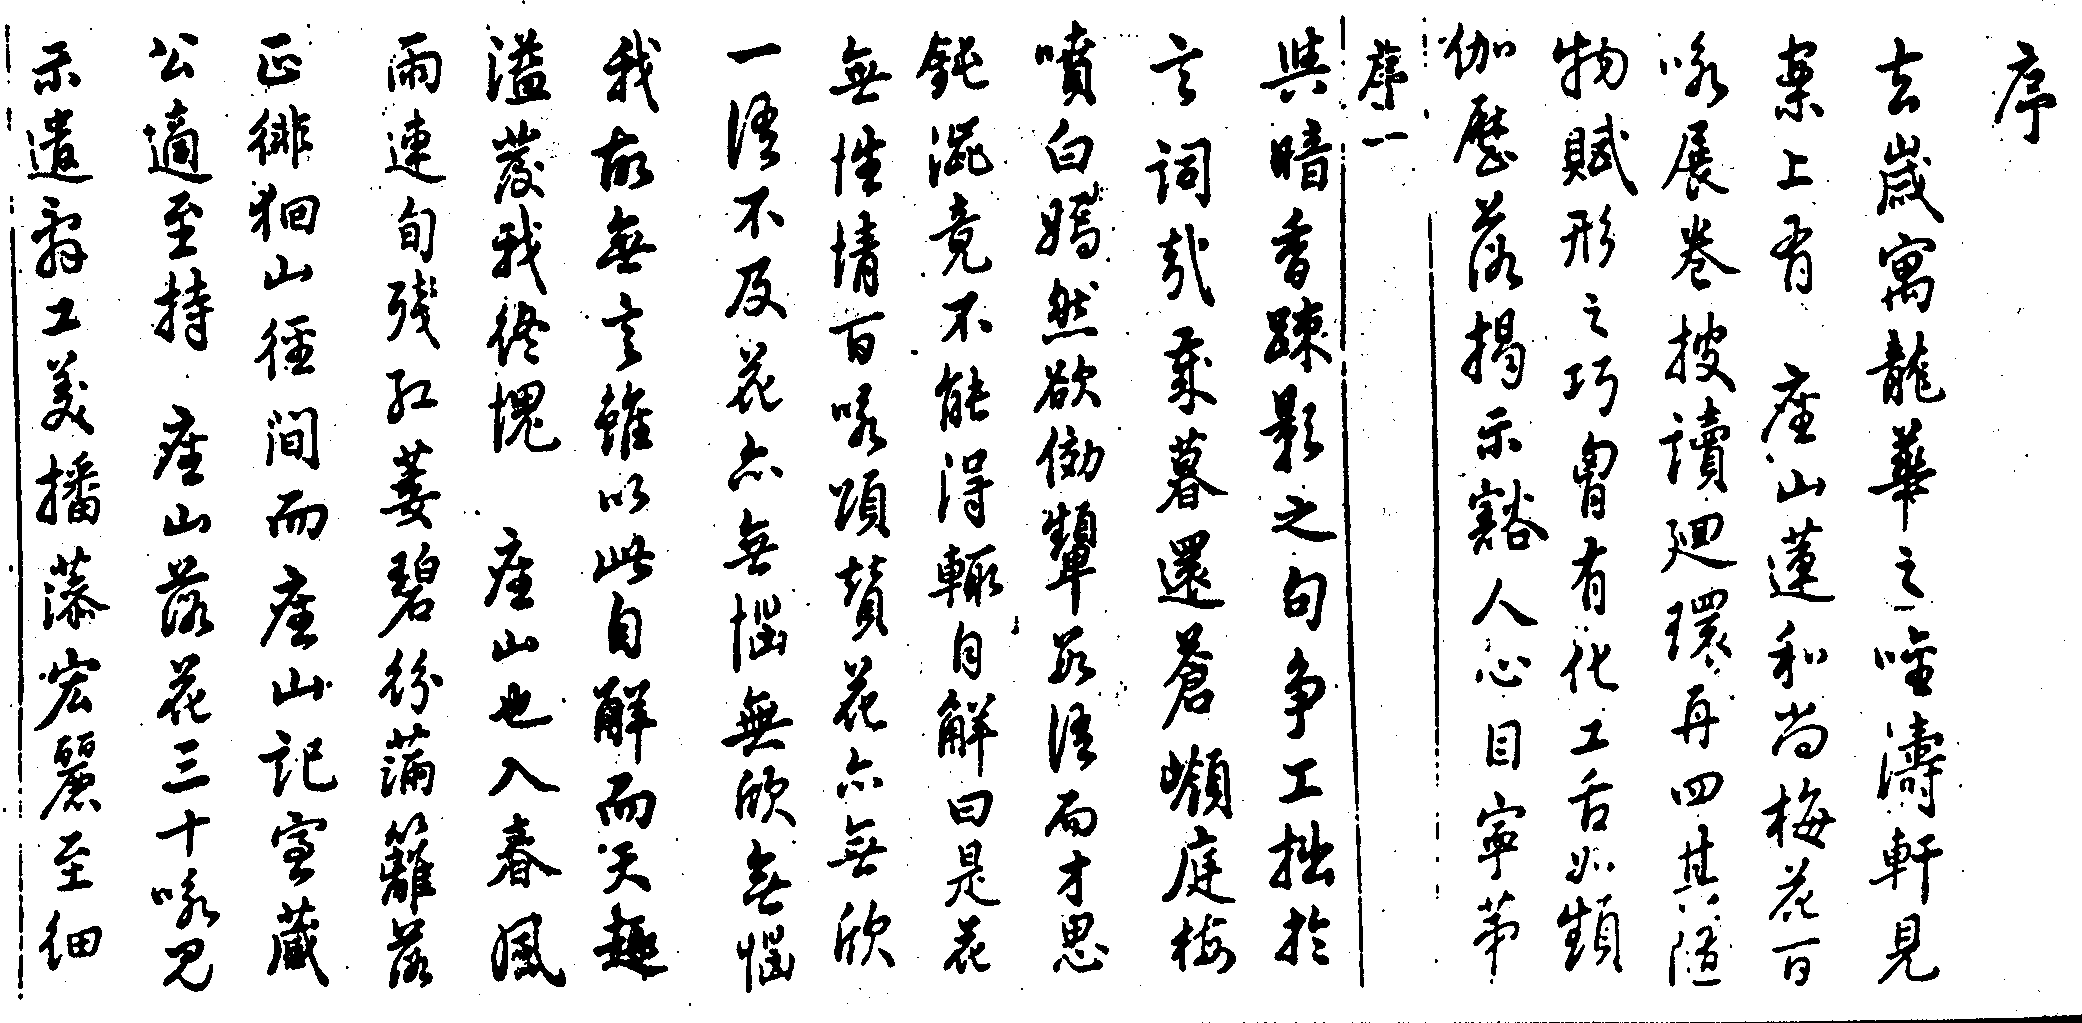 序
去歲寓龍華之唫濤軒見
案上有 座山蓮和尚梅花百
咏展卷披讀廻環再四其隨
物賦形之巧胷有化工舌如頻
伽歷落揭示豁人心目寧第
序一
與暗香踈影之句爭工拙於
言詞哉歲暮還蒼嶼庭梅
噴白嫣然欲傚顰數語而才思
鈍澀竟不能得輒自解曰是花
無性情百咏頌贊花亦無欣
一語不及花亦無惱無欣無惱
我故無言雖以此自解而天趣
溢發我終愧 座山也入春風
雨連旬殘紅萎碧紛滿籬落
正徘徊山徑間而座山記室藏
公適至持 座山落花三十咏見
示遣辭工美播藻宏麗至細